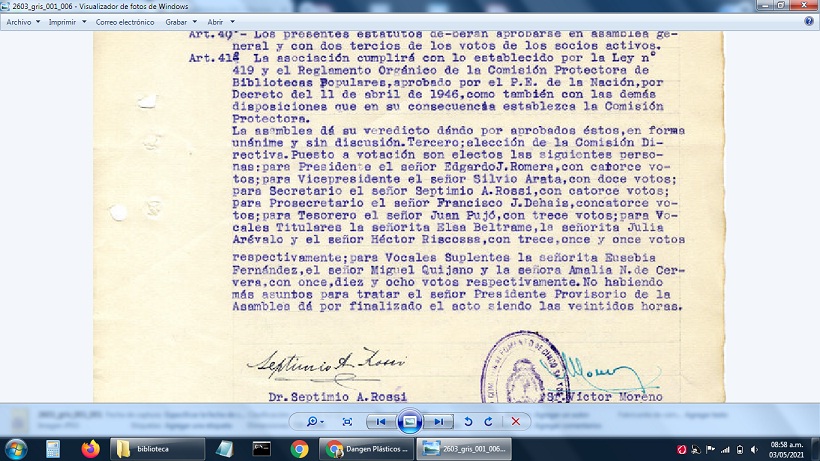 2603_gris_001_006 - Visualizador de fotos de Windows
Archivo Imprimir Correo electrónico Grabar Abrir
Art.40º- Los presentes estatutos deberan aprobarse en asamblea ge-
neral y con dos tercios de los votos de los socios activos.
Art.41º La asociación cumplirá con lo establecido por la Ley nº
419 y el Reglamento Orgánico de la Comisión Protectora de
Bibliotecas Populares,aprobado por el P.E. de la Nación,por
Decreto del 11 de abril de 1946,como también con las demás
disposiciones que en su consecuencia establezca la Comisión
Protectora.
La asamblea dá su veredicto dándo por aprobados éstos,en forma
unánime y sin discusión.Tercero;elección de la Comisión Di-
rectiva.Puesto a votación son electos las siguientes perso-
nas:para Presidente el señor EdgardoJ.Romera,con catorce vo-
tos;para Vicepresidente el señor Silvio Arata,con doce votos;
para Secretario el señor Septimio A.Rossi,con catorce votos;
para Prosecretario el señor Francisco J.Dehais,concatorce vo-
tos;para Tesorero el señor Juan Pujó,con trece votos;para Vo-
cales Titulares la señorita Elsa Beltrame,la señorita Julia
Arévalo y el señor Héctor Riscossa,con trece,once y once votos
respectivamente;para Vocales Suplentes la señorita Eusebia
Fernández,el señor Miguel Quijano y la señora Amalia N.de Cer-
vera,con once,diez y ocho votos respectivamente.No habiendo
más asuntos para tratar el señor Presidente Provisorio de la
Asamblea dá por finalizado el acto siendo las veintidos horas.
Septimio A. Rossi
Moreno
DE FOMENTO
Dr.Septimio A.Rossi Sr.Victor Moreno
biblioteca
Dangen Plásticos ...
2603_gris_001_006...
08:58 a.m.
03/05/2021